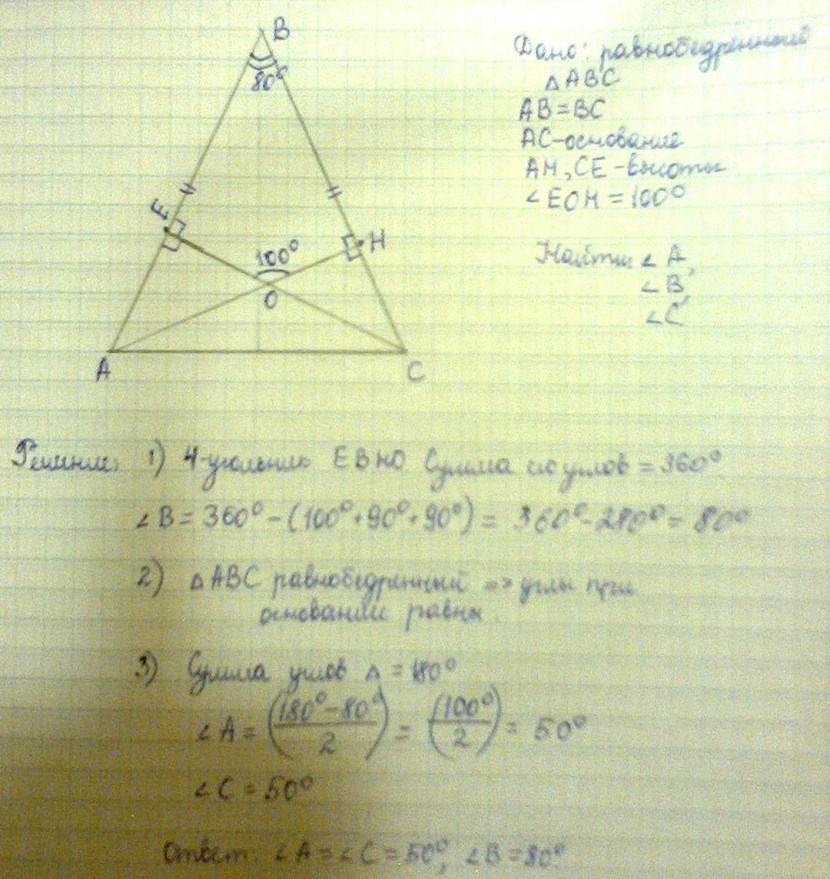 B
80°
Дано: равнобедренный
△ABC
AB=BC
AC-основание
AH, CE - высоты
∠EOH = 100°
Найти: ∠A,
∠B,
∠C
E
H
100°
O
A
C
Решение: 1) 4-угольник EBHO Сумма его углов = 360°
∠B = 360° - (100° + 90° + 90°) = 360° - 280° = 80°
2) △ABC равнобедренный => углы при
основании равны.
3) Сумма углов △ = 180°
∠A = (180° - 80° / 2) = (100° / 2) = 50°
∠C = 50°
Ответ: ∠A = ∠C = 50°, ∠B = 80°